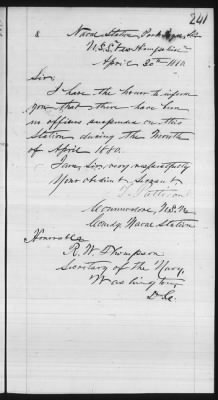 241
8
Naval Station Port Royal S.C.
U.S.S. New Hampshire
April 30th 1880.
Sir:
I have the honor to inform
you that there have been
no officers suspended on this
Station during the Month
of April 1880.
I am, sir, very respectfully
Your obedient Servant
Commodore, U.S.N.
Comdg. Naval Station
Honorable
R. W. Thompson
Secretary of the Navy,
Washington,
D.C.